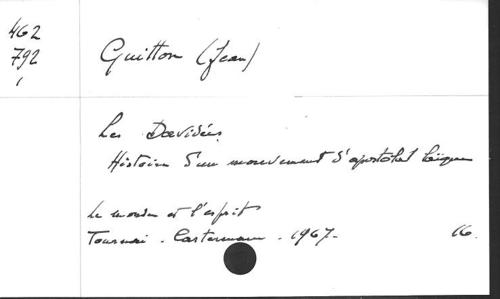 462
792
1
Guitton (Jean)
Les Davidées
Histoire d'un mouvement d'apostolat laïque
Le monde et l'esprit
Tournai - Casterman - 1967 - 16.